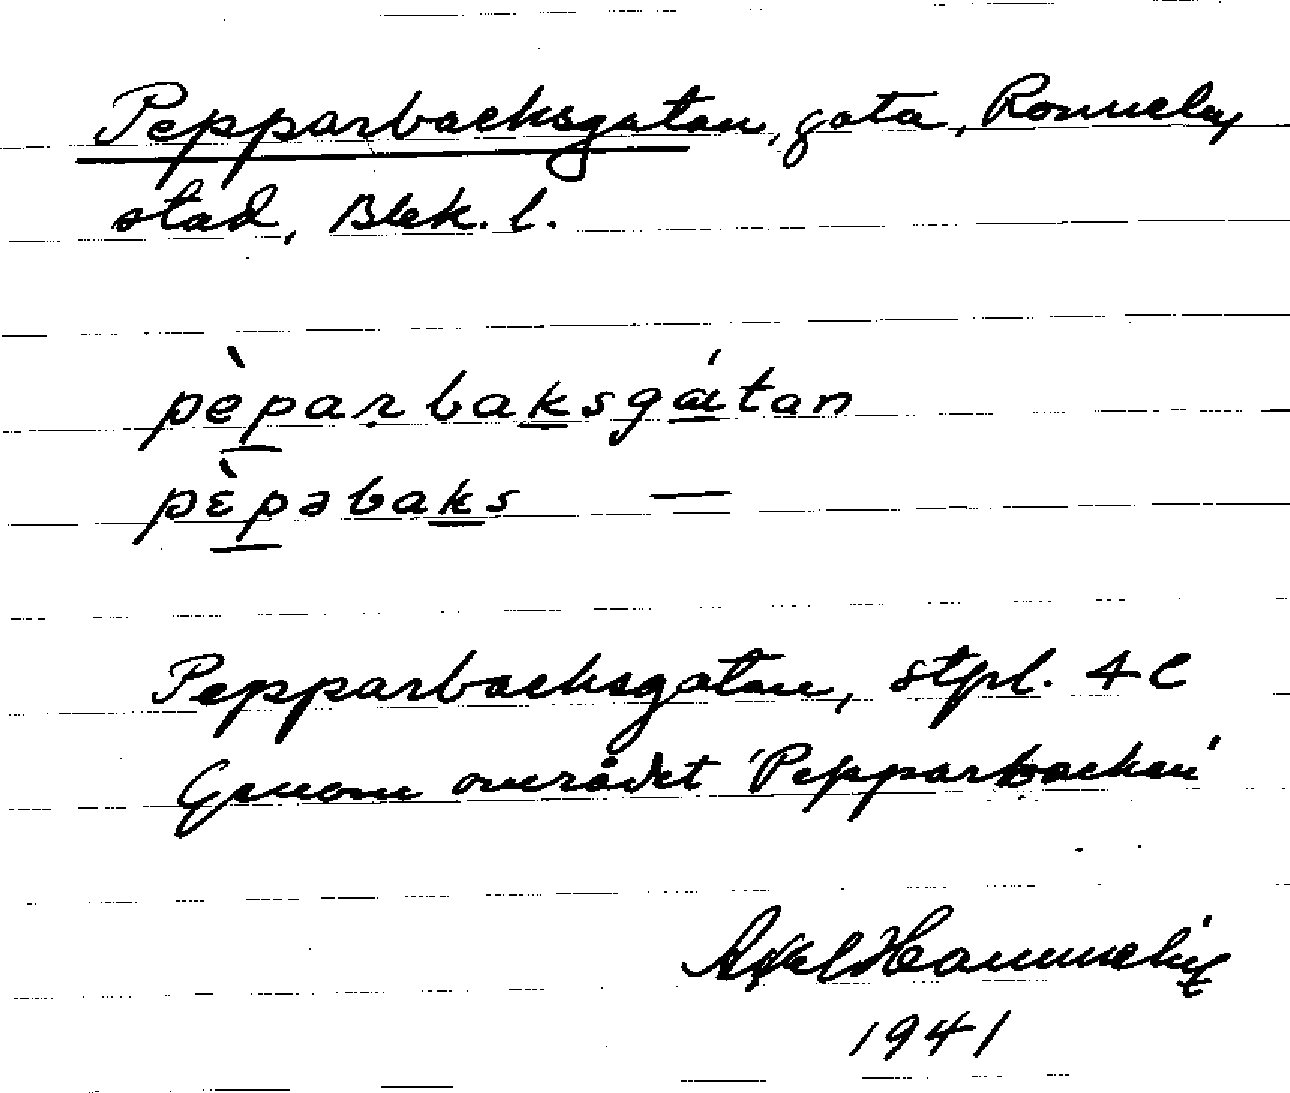 Pepparbacksgatan, gata, Ronneby
stad, Blek. l.
pèparbaksgátan
pɛ̀pəbaks —
Pepparbacksgatan, stpl. 4 C
Genom området 'Pepparbacken'
Axel
1941